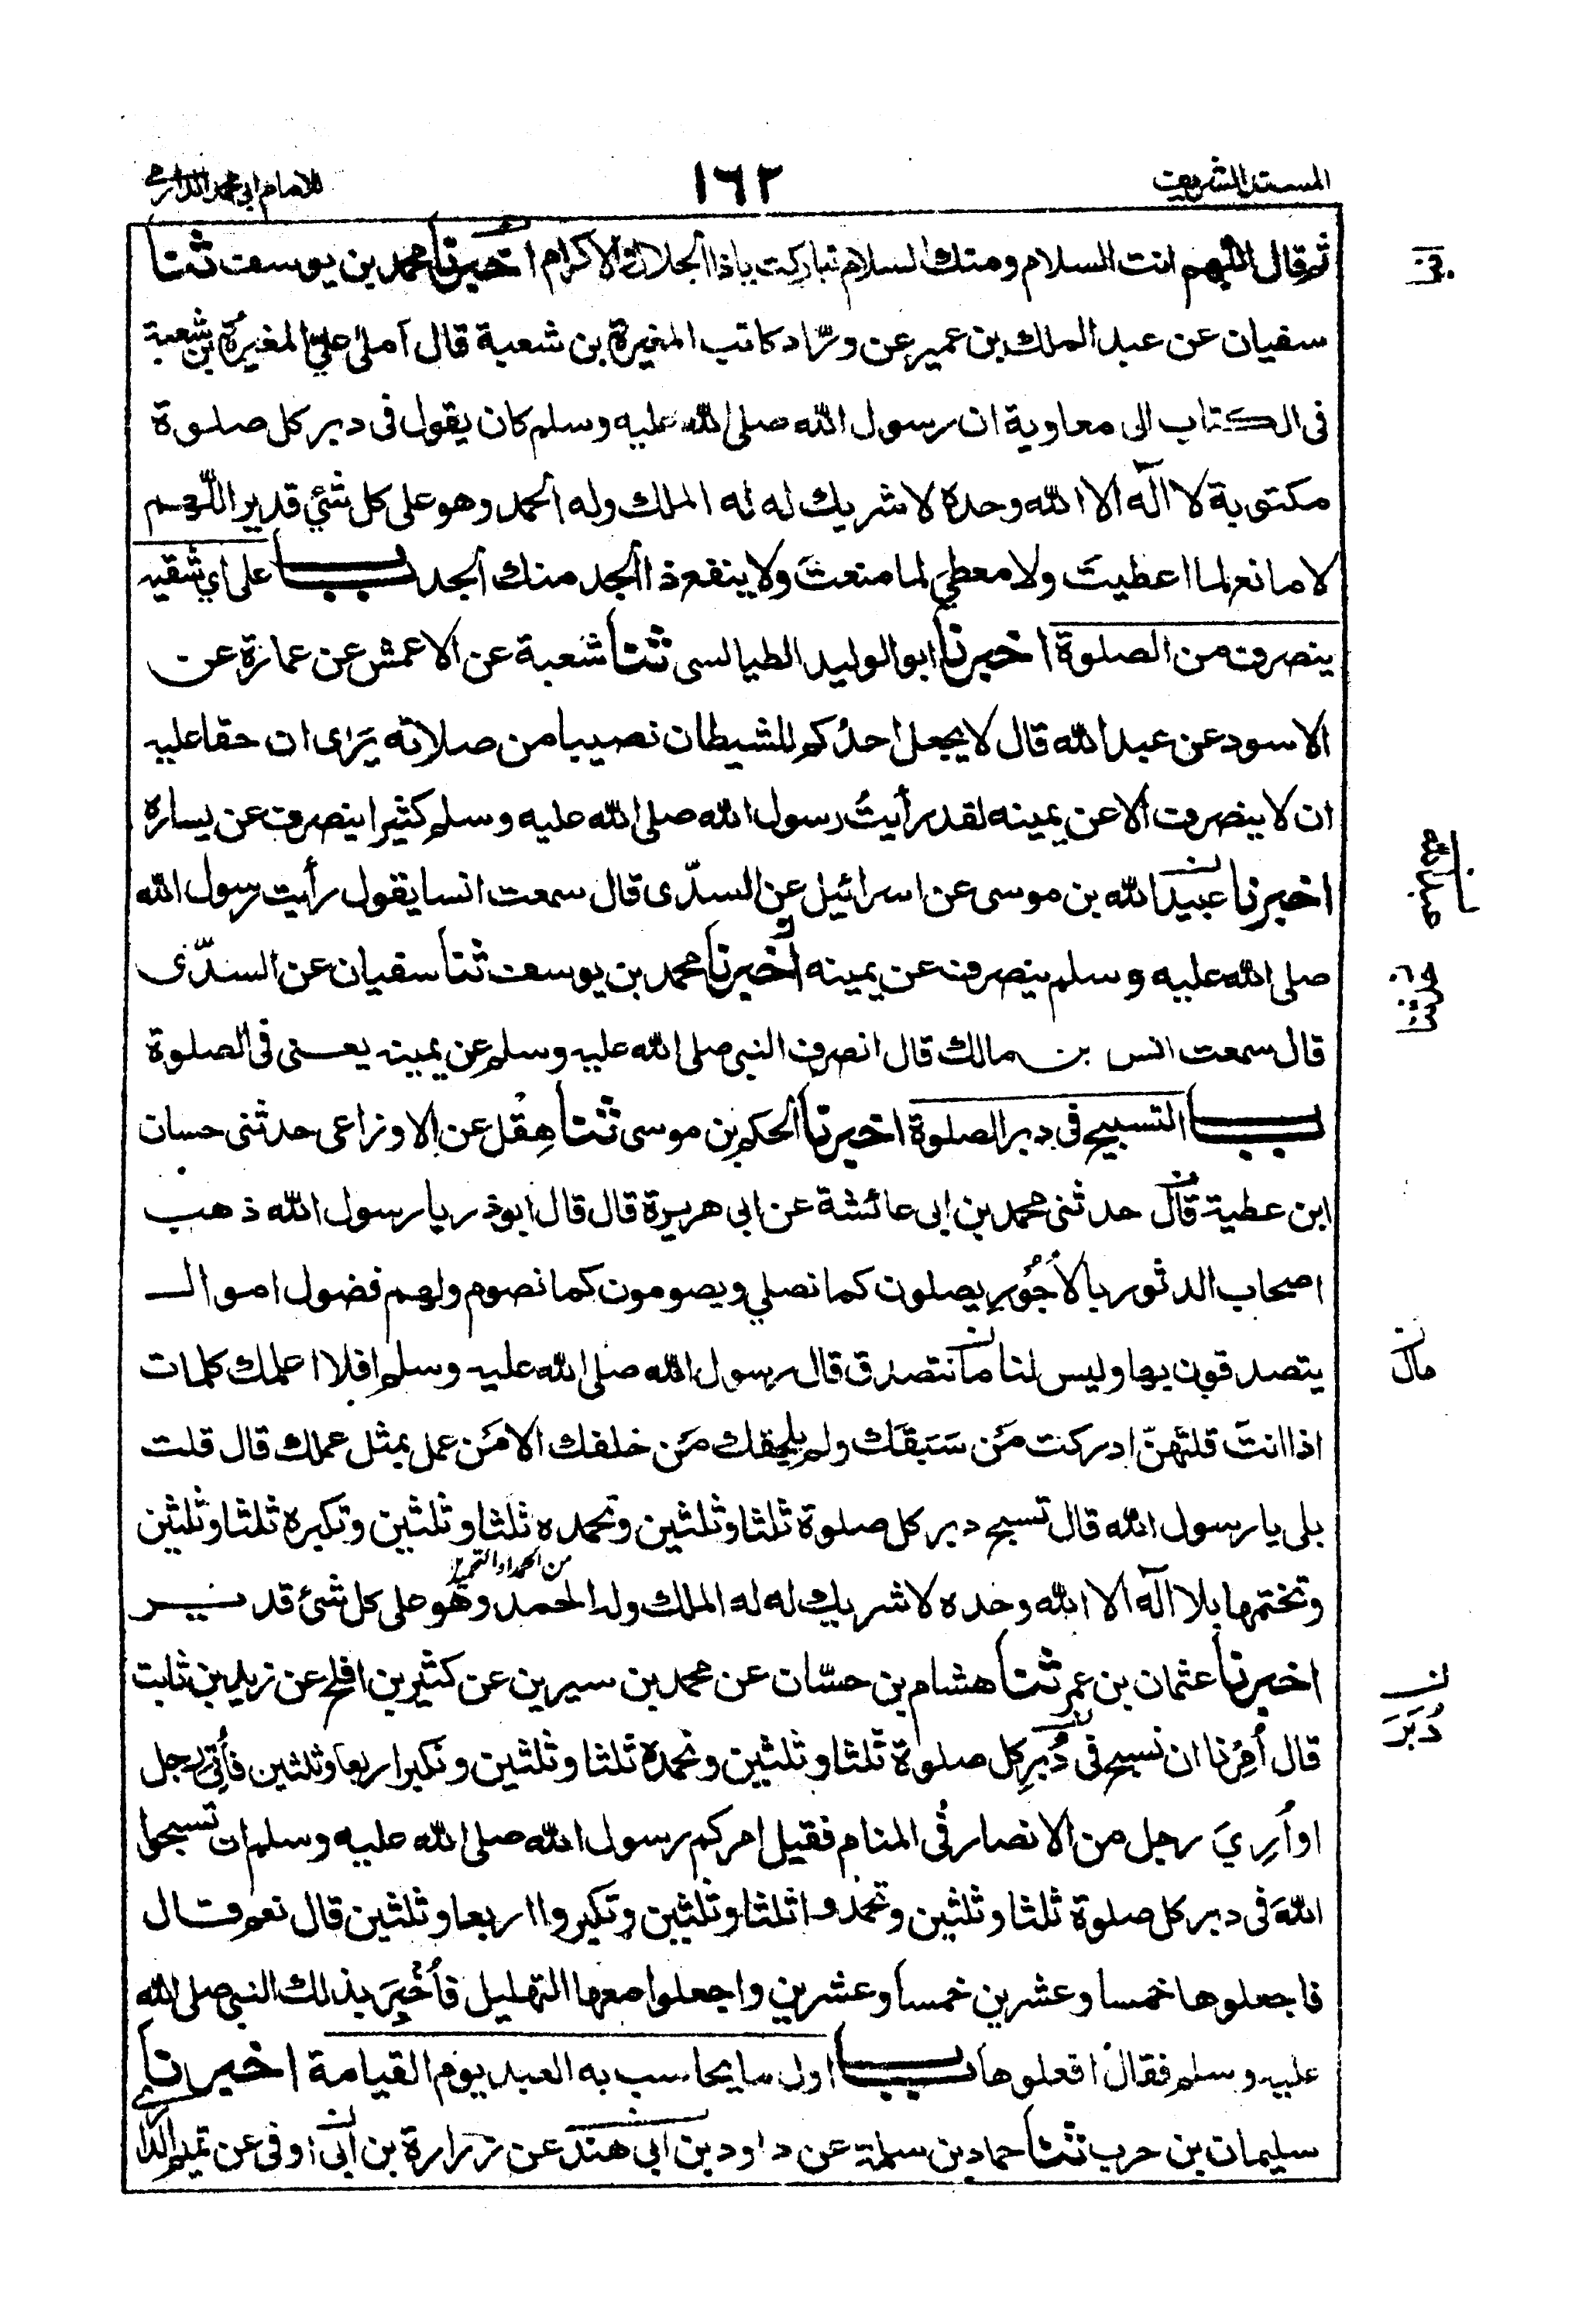 المسند الشريف
١٦٢
للامام ابى محمد الدارمى
ثم قال اللّٰهم انت السلام ومنك السلام تباركت ياذا الجلال والاكرام اخبرنا محمد بن يوسف ثنا
سفيان عن عبد الملك بن عمير عن ورّاد كاتب المغيرة بن شعبة قال املى علىّ المغيرة بن شعبة
فى الكتاب الى معاوية ان رسول الله صلى الله عليه وسلم كان يقول فى دبر كل صلوة
مكتوبة لا اله الا الله وحدة لا شريك له له الملك وله الحمد وهو على كل شئ قدير اللّٰهم
لا مانع لما اعطيتَ ولا معطي لما منعتَ ولا ينفع ذا الجد منك الجد باب على اي شقيه
ينصرف من الصلوة اخبرنا ابو الوليد الطيالسى ثنا شعبة عن الاعمش عن عمارة عن
الاسود عن عبد الله قال لا يجعل احدُكم للشيطان نصيبا من صلاته يَرَاى ان حقا عليه
ان لا ينصرف الا عن يمينه لقد رأيتُ رسول الله صلى الله عليه وسلم كثيرا ينصرف عن يساره
اخبرنا عبيد الله بن موسى عن اسرائيل عن السدّى قال سمعت انسا يقول رأيت رسول الله
عبد الله
صلى الله عليه وسلم ينصرف عن يمينه اخبرنا محمد بن يوسف ثنا سفيان عن السدّى
قال سمعت انس بن مالك قال انصرف النبى صلى الله عليه وسلم عن يمينه يعنى فى الصلوة
باب التسبيح فى دبر الصلوة اخبرنا الحكم بن موسى ثنا هِقْل عن الاوزاعى حدثنى حسان
ابن عطية قال حدثنى محمد بن ابى عائشة عن ابى هريرة قال قال ابوذر يا رسول الله ذهب
اصحاب الدثور بالأجُورِ يصلون كما نصلي ويصومون كما نصوم ولهم فضول اموال
يتصدقون بها وليس لنا ما نتصدق قال رسول الله صلى الله عليه وسلم افلا اعلمك كلمات
مال
اذا انتَ قلتهنّ ادركت مَن سَبَقَك ولم يلحقك مَن خلفك الا مَن عمل بمثل عملك قال قلت
بلى يا رسول الله قال تسبح دبر كل صلوة ثلثا وثلثين وتحمده ثلثا وثلثين وتكبره ثلثا وثلثين
من الحمد او التحميد
وتختمها بلا اله الا الله وحده لا شريك له له الملك وله الحمد وهو على كل شئ قدير
اخبرنا عثمان بن عمر ثنا هشام بن حسّان عن محمد بن سيرين عن كثير بن افلح عن زيد بن ثابت
دُبَرَ
قال أُمِرْنا ان نسبح فى دُبرِ كل صلوة ثلثا وثلثين ونحمدة ثلثا وثلثين ونكبر اربعا وثلثين فأُتِىَ رجل
او أُرِيَ رجل من الانصار فى المنام فقيل امركم رسول الله صلى الله عليه وسلم ان تسبحوا
اللهَ فى دبر كل صلوة ثلثا وثلثين وتحمدوا ثلثا وثلثين وتكبروا اربعا وثلثين قال نعم قال
فاجعلوها خمسا وعشرين خمسا وعشرين واجعلوا معها التهليل فأُخْبِرَ بذلك النبى صلى الله
عليه وسلم فقال افعلوها باب اول ما يحاسب به العبد يوم القيامة اخبرنا
سليمان بن حرب ثنا حماد بن سلمة عن داود بن ابى هند عن زرارة بن ابى اوفى عن تميم الدارى